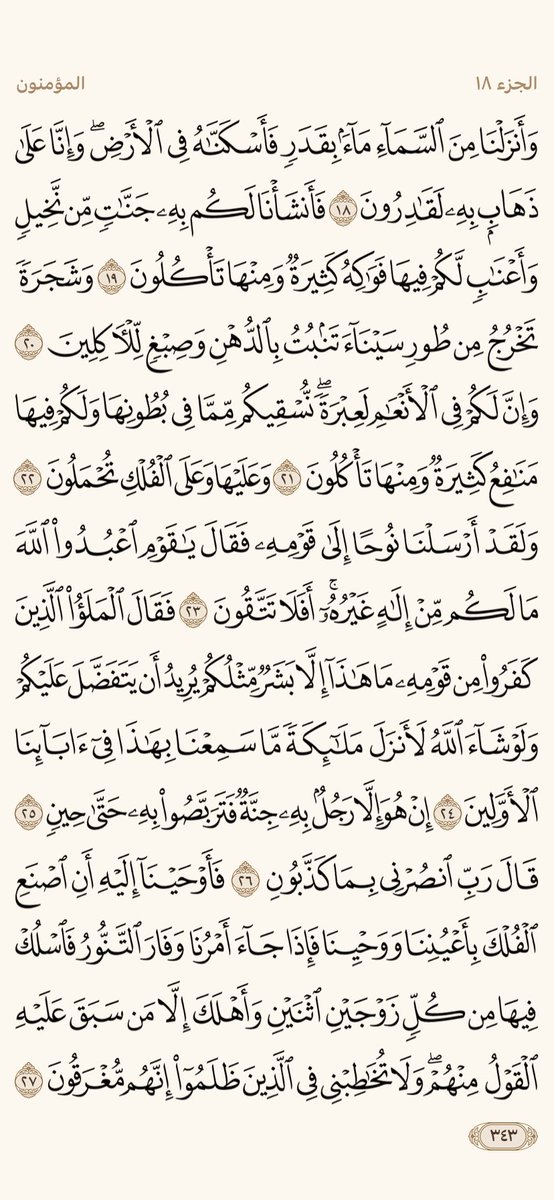 الجزء ١٨
المؤمنون
وَأَنزَلْنَا مِنَ ٱلسَّمَآءِ مَآءَۢ بِقَدَرٖ فَأَسْكَنَّٰهُ فِي ٱلْأَرْضِۖ وَإِنَّا عَلَىٰ
ذَهَابِۭ بِهِۦ لَقَٰدِرُونَ ١٨ فَأَنشَأْنَا لَكُم بِهِۦ جَنَّٰتٖ مِّن نَّخِيلٖ
وَأَعْنَٰبٖ لَّكُمْ فِيهَا فَوَٰكِهُ كَثِيرَةٞ وَمِنْهَا تَأْكُلُونَ ١٩ وَشَجَرَةٗ
تَخْرُجُ مِن طُورِ سَيْنَآءَ تَنۢبُتُ بِٱلدُّهْنِ وَصِبْغٖ لِّلْأٓكِلِينَ ٢٠
وَإِنَّ لَكُمْ فِي ٱلْأَنْعَٰمِ لَعِبْرَةٗۖ نُّسْقِيكُم مِّمَّا فِي بُطُونِهَا وَلَكُمْ فِيهَا
مَنَٰفِعُ كَثِيرَةٞ وَمِنْهَا تَأْكُلُونَ ٢١ وَعَلَيْهَا وَعَلَى ٱلْفُلْكِ تُحْمَلُونَ ٢٢
وَلَقَدْ أَرْسَلْنَا نُوحًا إِلَىٰ قَوْمِهِۦ فَقَالَ يَٰقَوْمِ ٱعْبُدُوا۟ ٱللَّهَ
مَا لَكُم مِّنْ إِلَٰهٍ غَيْرُهُۥٓۚ أَفَلَا تَتَّقُونَ ٢٣ فَقَالَ ٱلْمَلَؤُا۟ ٱلَّذِينَ
كَفَرُوا۟ مِن قَوْمِهِۦ مَا هَٰذَآ إِلَّا بَشَرٞ مِّثْلُكُمْ يُرِيدُ أَن يَتَفَضَّلَ عَلَيْكُمْ
وَلَوْ شَآءَ ٱللَّهُ لَأَنزَلَ مَلَٰٓئِكَةٗ مَّا سَمِعْنَا بِهَٰذَا فِيٓ ءَابَآئِنَا
ٱلْأَوَّلِينَ ٢٤ إِنْ هُوَ إِلَّا رَجُلُۢ بِهِۦ جِنَّةٞ فَتَرَبَّصُوا۟ بِهِۦ حَتَّىٰ حِينٖ ٢٥
قَالَ رَبِّ ٱنصُرْنِي بِمَا كَذَّبُونِ ٢٦ فَأَوْحَيْنَآ إِلَيْهِ أَنِ ٱصْنَعِ
ٱلْفُلْكَ بِأَعْيُنِنَا وَوَحْيِنَا فَإِذَا جَآءَ أَمْرُنَا وَفَارَ ٱلتَّنُّورُ فَٱسْلُكْ
فِيهَا مِن كُلّٖ زَوْجَيْنِ ٱثْنَيْنِ وَأَهْلَكَ إِلَّا مَن سَبَقَ عَلَيْهِ
ٱلْقَوْلُ مِنْهُمْۖ وَلَا تُخَٰطِبْنِي فِي ٱلَّذِينَ ظَلَمُوٓا۟ إِنَّهُم مُّغْرَقُونَ ٢٧
٣٤٣